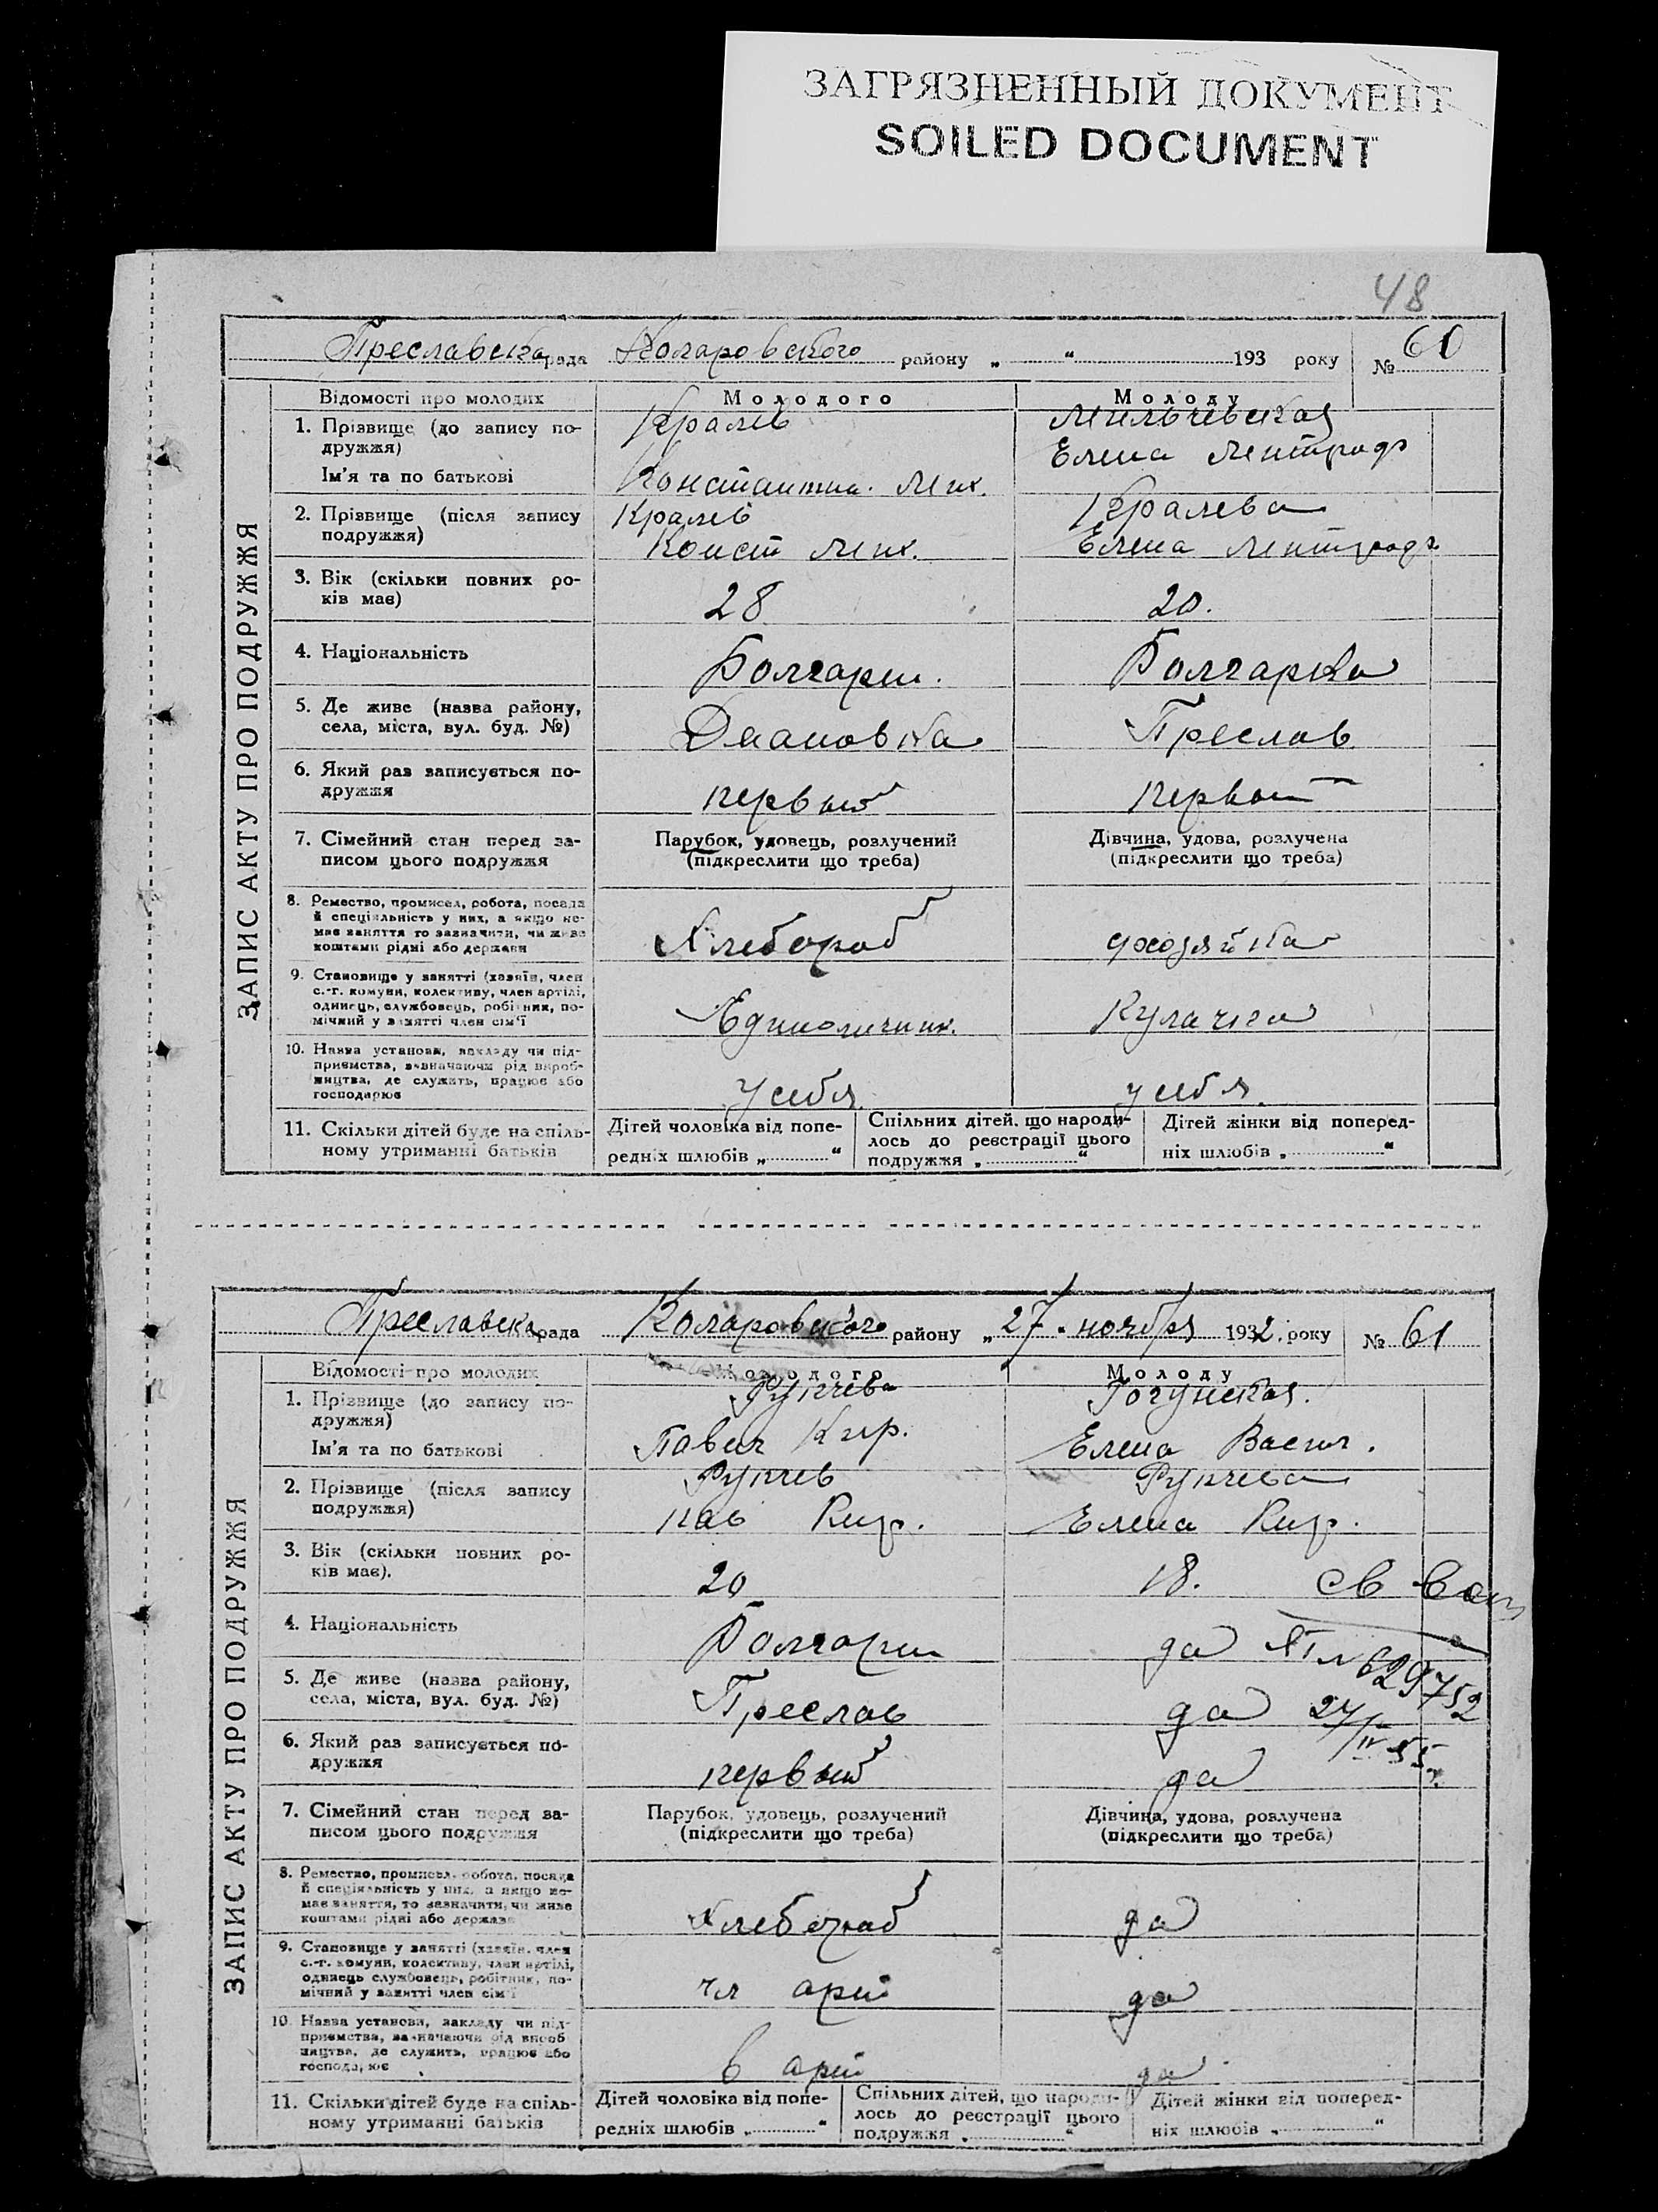 ЗАГРЯЗНЕННЫЙ ДОКУМЕНТ
SOILED DOCUMENT
48
Преславска рада Коларовского району „ “ 193 року № 60
ЗАПИС АКТУ ПРО ПОДРУЖЖЯ
Відомості про молодих Молодого Молоду
1. Прізвище (до запису по-
дружжя)
Ім'я та по батькові
Кралев
Константин. Мих.
Мильчевская
Елена
2. Прізвище (після запису
подружжя)
Кралев
Конст Мих.
Кралева
Елена
3. Вік (скільки повних ро-
ків має)
28
20.
4. Національність
Болгарин.
Болгарка
5. Де живе (назва району,
села, міста, вул. буд. №)
Диановка
Преслав
6. Який раз записується по-
дружжя
первый
первый
7. Сімейний стан перед за-
писом цього подружжя
Парубок, удовець, розлучений
(підкреслити що треба)
Дівчина, удова, розлучена
(підкреслити що треба)
8. Ремество, промисел, робота, посада
й спеціяльність у них, а якщо не-
має заняття то зазначити, чи живе
коштами рідні або держави
Хлебороб
дхозяйка
9. Становище у занятті (хазяїн, член
с.-г. комуни, колективу, член артілі,
одинець, службовець, робітник, по-
мічний у занятті член сім'ї
Единоличник.
Кулачка
10. Назва установи, закладу чи під-
приємства, зазначаючи рід вироб-
ництва, де служить, працює або
господарює
у себя.
у себя.
11. Скільки дітей буде на спіль-
ному утриманні батьків
Дітей чоловіка від попе-
редніх шлюбів „ “
Спільних дітей, що народи-
лось до реєстрації цього
подружжя „ “
Дітей жінки від поперед-
ніх шлюбів „ “
Преславска рада Коларовского району „27“ ноября 1932. року № 61
ЗАПИС АКТУ ПРО ПОДРУЖЖЯ
Відомості про молодих Молодого Молоду
1. Прізвище (до запису по-
дружжя)
Ім'я та по батькові
Рупчева
Павел Кир.
Рогунская.
Елена Васил.
2. Прізвище (після запису
подружжя)
Рупчев
Пав Кир.
Рупчева
Елена Кир.
3. Вік (скільки повних ро-
ків має).
20
18.
св
4. Національність
Болгарин
да
629752
5. Де живе (назва району,
села, міста, вул. буд. №)
Преслав
да
24/IV 55г.
6. Який раз записується по-
дружжя
первый
да
7. Сімейний стан перед за-
писом цього подружжя
Парубок, удовець, розлучений
(підкреслити що треба)
Дівчина, удова, розлучена
(підкреслити що треба)
8. Ремество, промисел, робота, посада
й спеціяльність у них, а якщо не-
має заняття, то зазначити, чи живе
коштами рідні або держави
Хлебороб
да
9. Становище у занятті (хазяїн, член
с.-г. комуни, колективу, член артілі,
одинець службовець, робітник, по-
мічний у занятті член сім'ї
чл арт
да
10. Назва установи, закладу чи під-
приємства, зазначаючи рід вироб
ництва, де служить, працює або
господарює
в арт
да
11. Скільки дітей буде на спіль-
ному утриманні батьків
Дітей чоловіка від попе-
редніх шлюбів „ “
Спільних дітей, що народи-
лось до реєстрації цього
подружжя „ “
Дітей жінки від поперед-
ніх шлюбів „ “